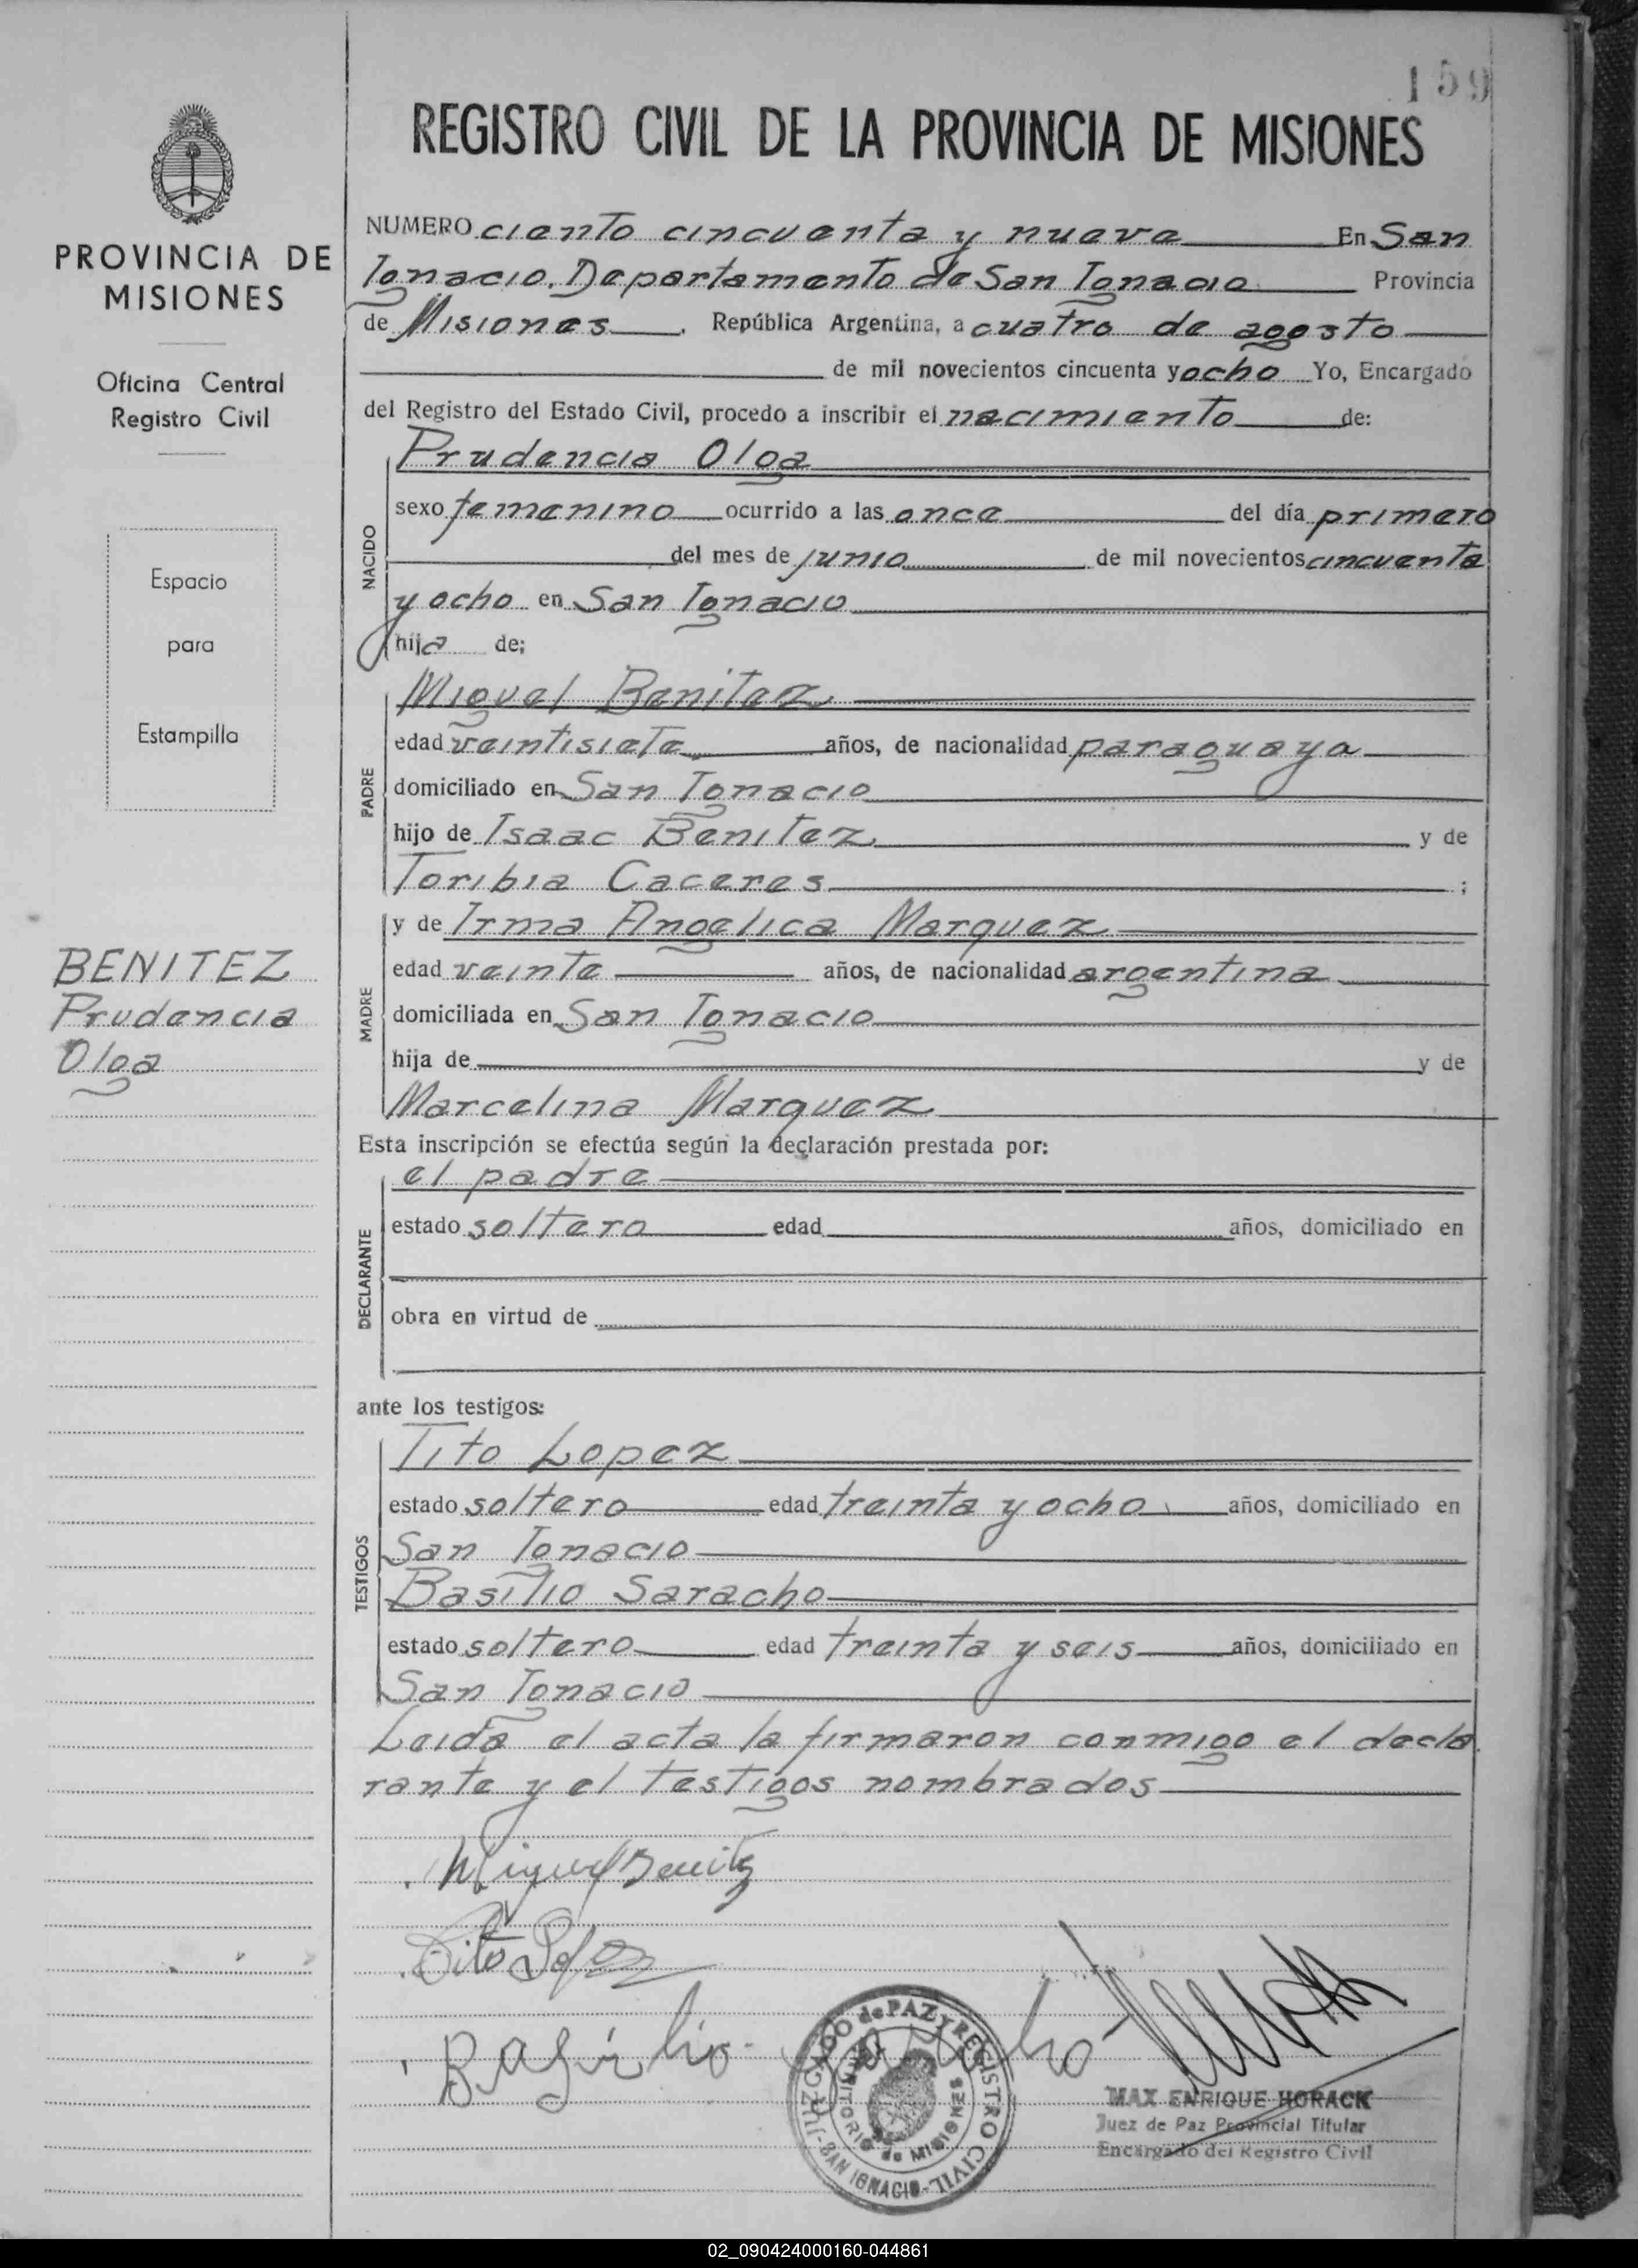 159
REGISTRO CIVIL DE LA PROVINCIA DE MISIONES
PROVINCIA DE
MISIONES
Oficina Central
Registro Civil
Espacio
para
Estampilla
BENITEZ
Prudencia
Olga
NUMERO ciento cincuenta y nueve En San
Ignacio, Departamento de San Ignacio Provincia
de Misiones. República Argentina, a cuatro de agosto
de mil novecientos cincuenta y ocho Yo, Encargado
del Registro del Estado Civil, procedo a inscribir el nacimiento de:
NACIDO
Prudencia Olga
sexo femenino ocurrido a las once del día primero
del mes de junio de mil novecientos cincuenta
y ocho en San Ignacio
hija de;
PADRE
Miguel Benitez
edad veintisiete años, de nacionalidad paraguaya
domiciliado en San Ignacio
hijo de Isaac Benitez y de
Toribia Caceres ;
MADRE
y de Irma Angelica Marquez
edad veinte años, de nacionalidad argentina
domiciliada en San Ignacio
hija de y de
Marcelina Marquez
Esta inscripción se efectúa según la declaración prestada por:
DECLARANTE
el padre
estado soltero edad años, domiciliado en
obra en virtud de
ante los testigos:
TESTIGOS
Tito Lopez
estado soltero edad treinta y ocho años, domiciliado en
San Ignacio
Basilio Saracho
estado soltero edad treinta y seis años, domiciliado en
San Ignacio
Leida el acta la firmaron conmigo el decla
rante y el testigos nombrados
Miguel Benitez
Tito Lopez
Basilio
JUZGADO de PAZ Y REGISTRO CIVIL
SAN IGNACIO
TERRITORIO de MISIONES
MAX ENRIQUE HORACK
Juez de Paz Provincial Titular
Encargado del Registro Civil
02_090424000160-044861